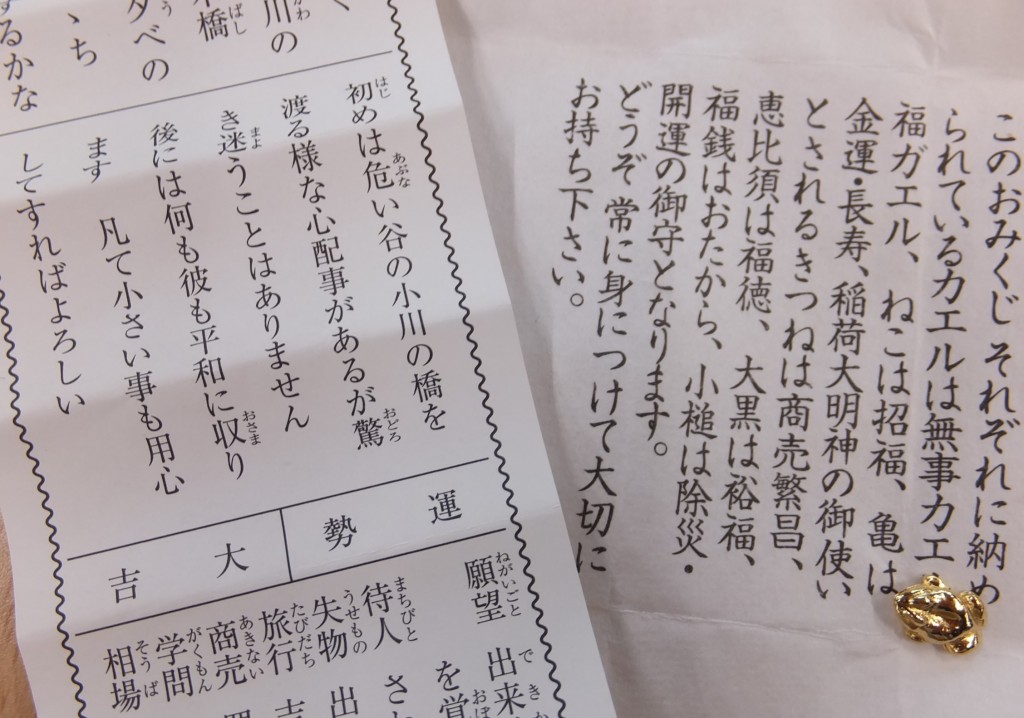 このおみくじ それぞれに納め
られているカエルは無事カエ
福ガエル、ねこは招福、亀は
金運・長寿、稲荷大明神の御使い
とされるきつねは商売繁昌、
恵比須は福徳、大黒は裕福、
福銭はおたから、小槌は除災・
開運の御守となります。
どうぞ常に身につけて大切に
お持ち下さい。
かわ
川の
ばし
橋
夕べの
ゝち
するかな
はじ あぶな
初めは危い谷の小川の橋を
おどろ
渡る様な心配事があるが驚
まよ
き迷うことはありません
おさま
後には何も彼も平和に収り
ます 凡て小さい事も用心
してすればよろしい
運勢
大吉
ねがいごと で き
願望 出来
おぼ
を覚
まちびと
待人 さ
うせもの
失物 出
たびだち
旅行 吉
あきない
商売
がくもん
学問
そうば
相場